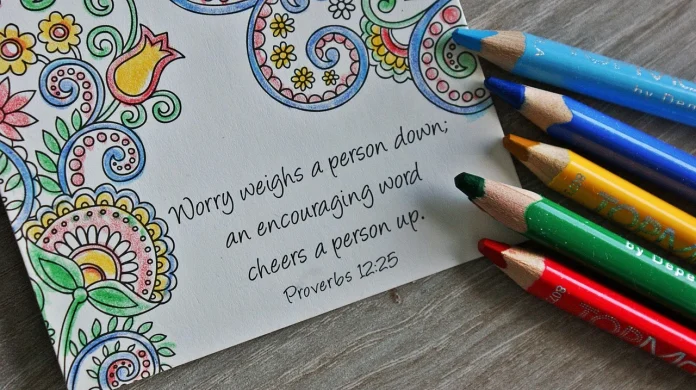 Worry weighs a person down;
an encouraging word
cheers a person up.
Proverbs 12:25
by Depe
TOPM
by Depe
TOPMO